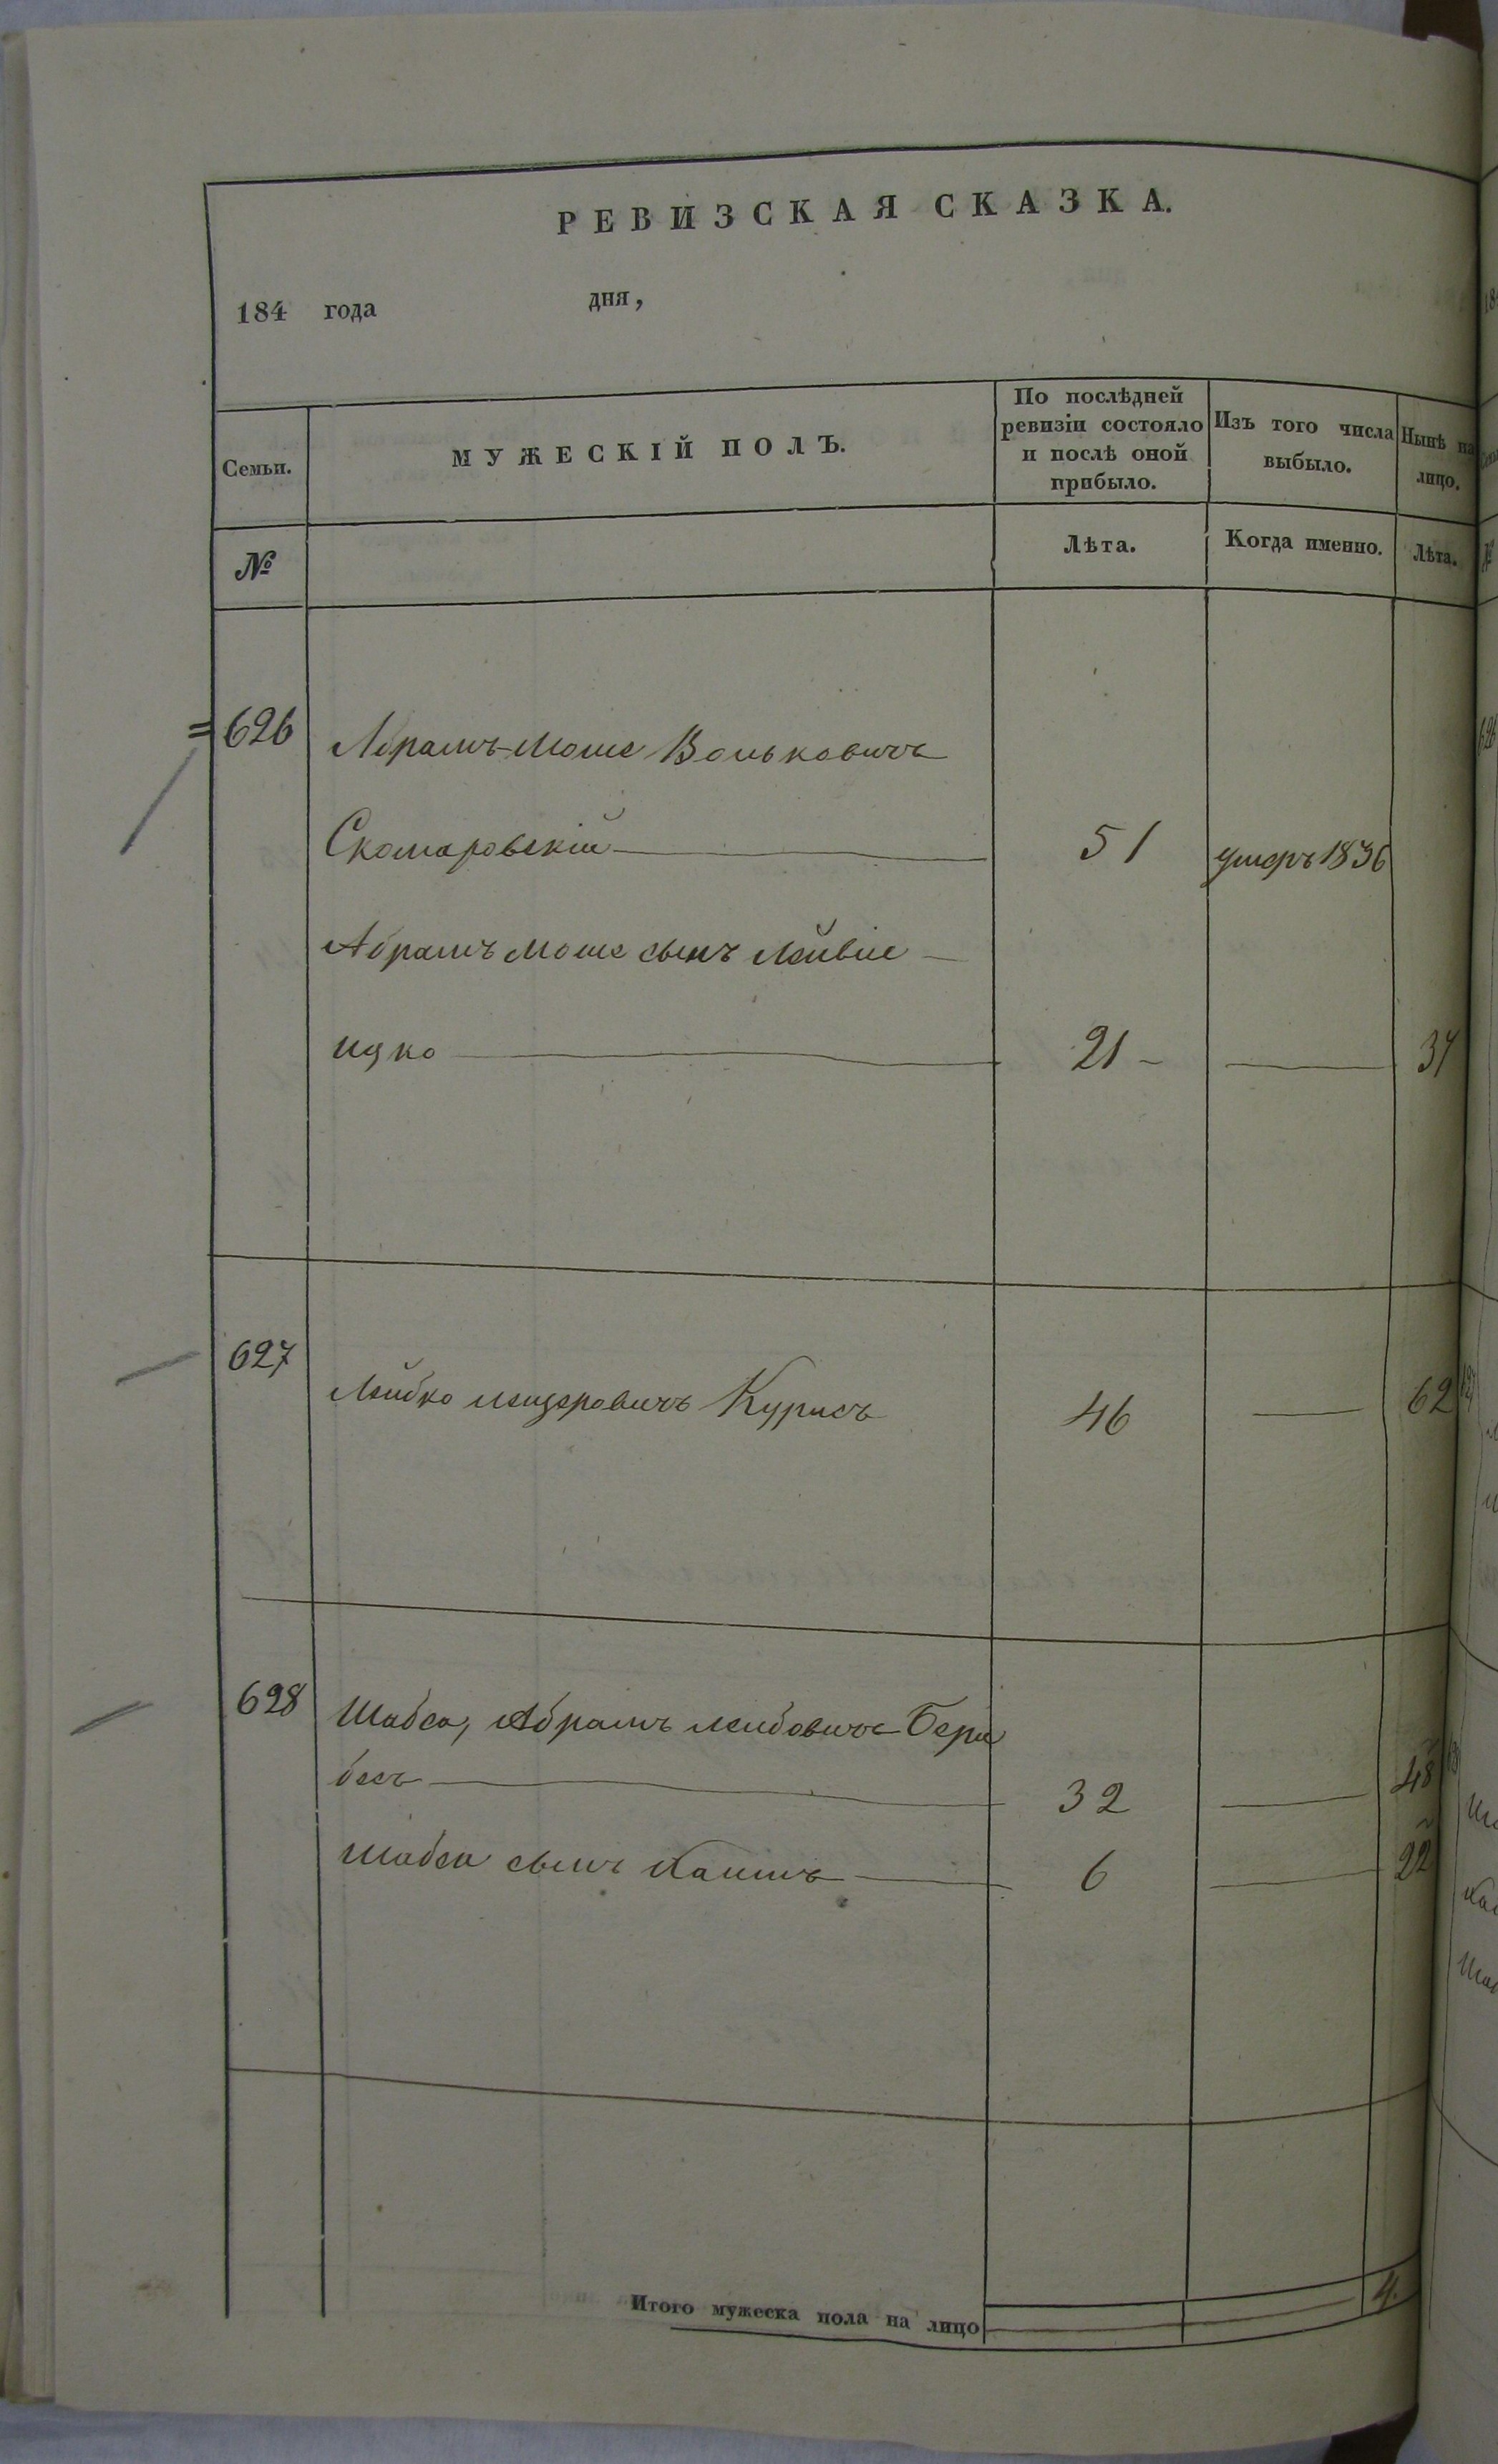 РЕВИЗСКАЯ СКАЗКА.
184 года дня,
Семьи.
МУЖЕСКІЙ ПОЛЪ.
По послѣдней
ревизіи состояло
и послѣ оной
прибыло.
Изъ того числа
выбыло.
Нынѣ на
лицо.
№
Лѣта.
Когда именно.
Лѣта.
626 Абрамъ-Моше Вольковичъ
Скомаровскій 51 умеръ 1836
Абрамъ Моше сынъ
ицко 21 37
627
Лейбко Курисъ 46 62
628 Шабса, Абрамъ Лейбовичъ
32 48
Шабса сынъ 6 22
Итого мужеска пола на лицо 4.